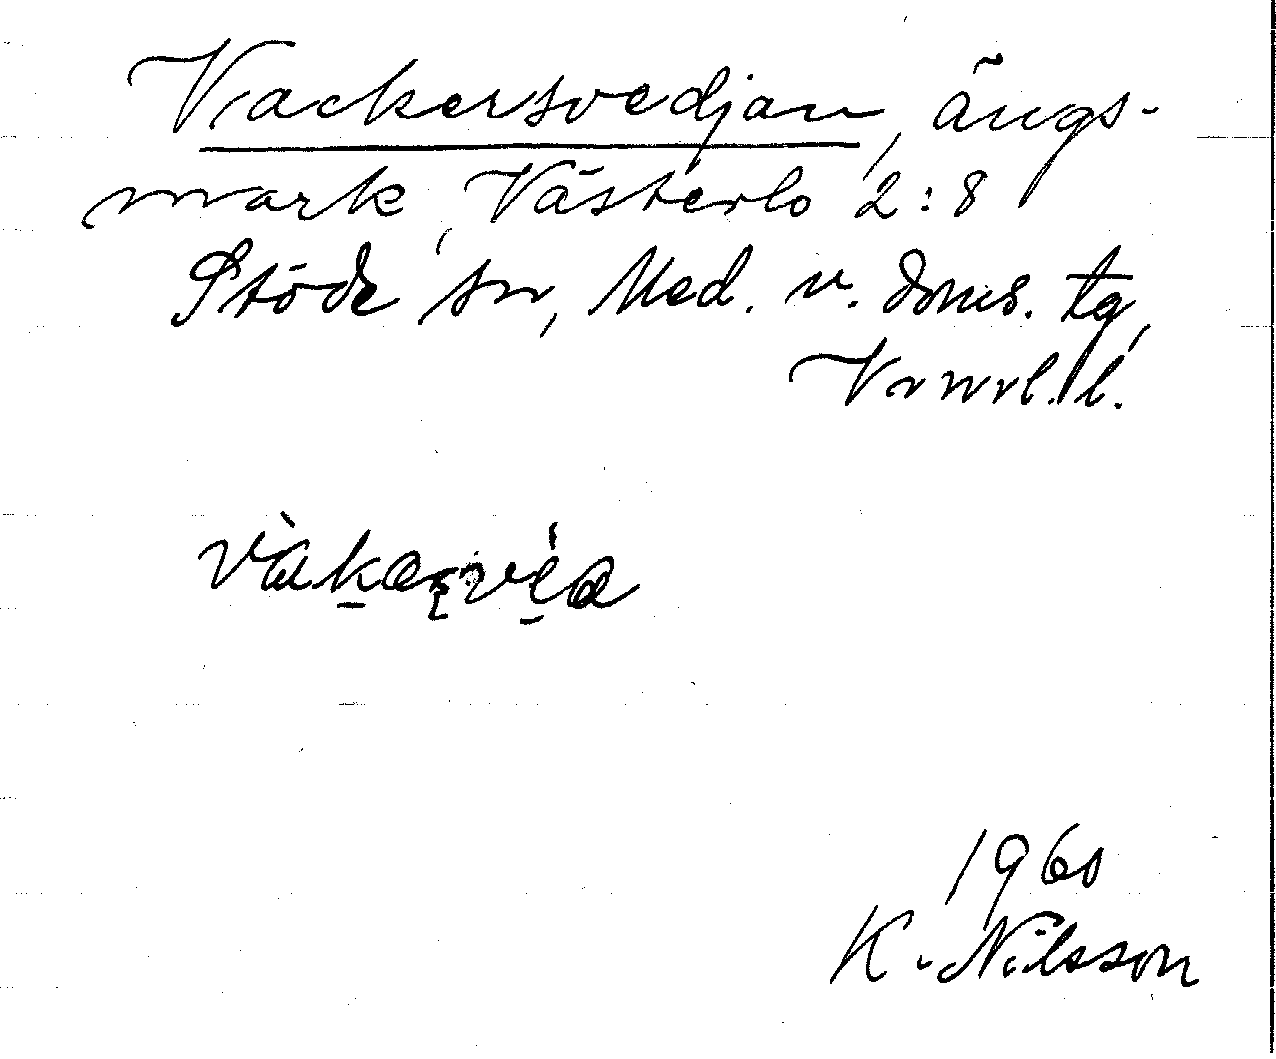 Vackersvedjan, ängs-
mark, Västerlo 2:8
Stöde sn, Med. v. doms. tg,
Vnorl. l.
1960
K. Nilsson